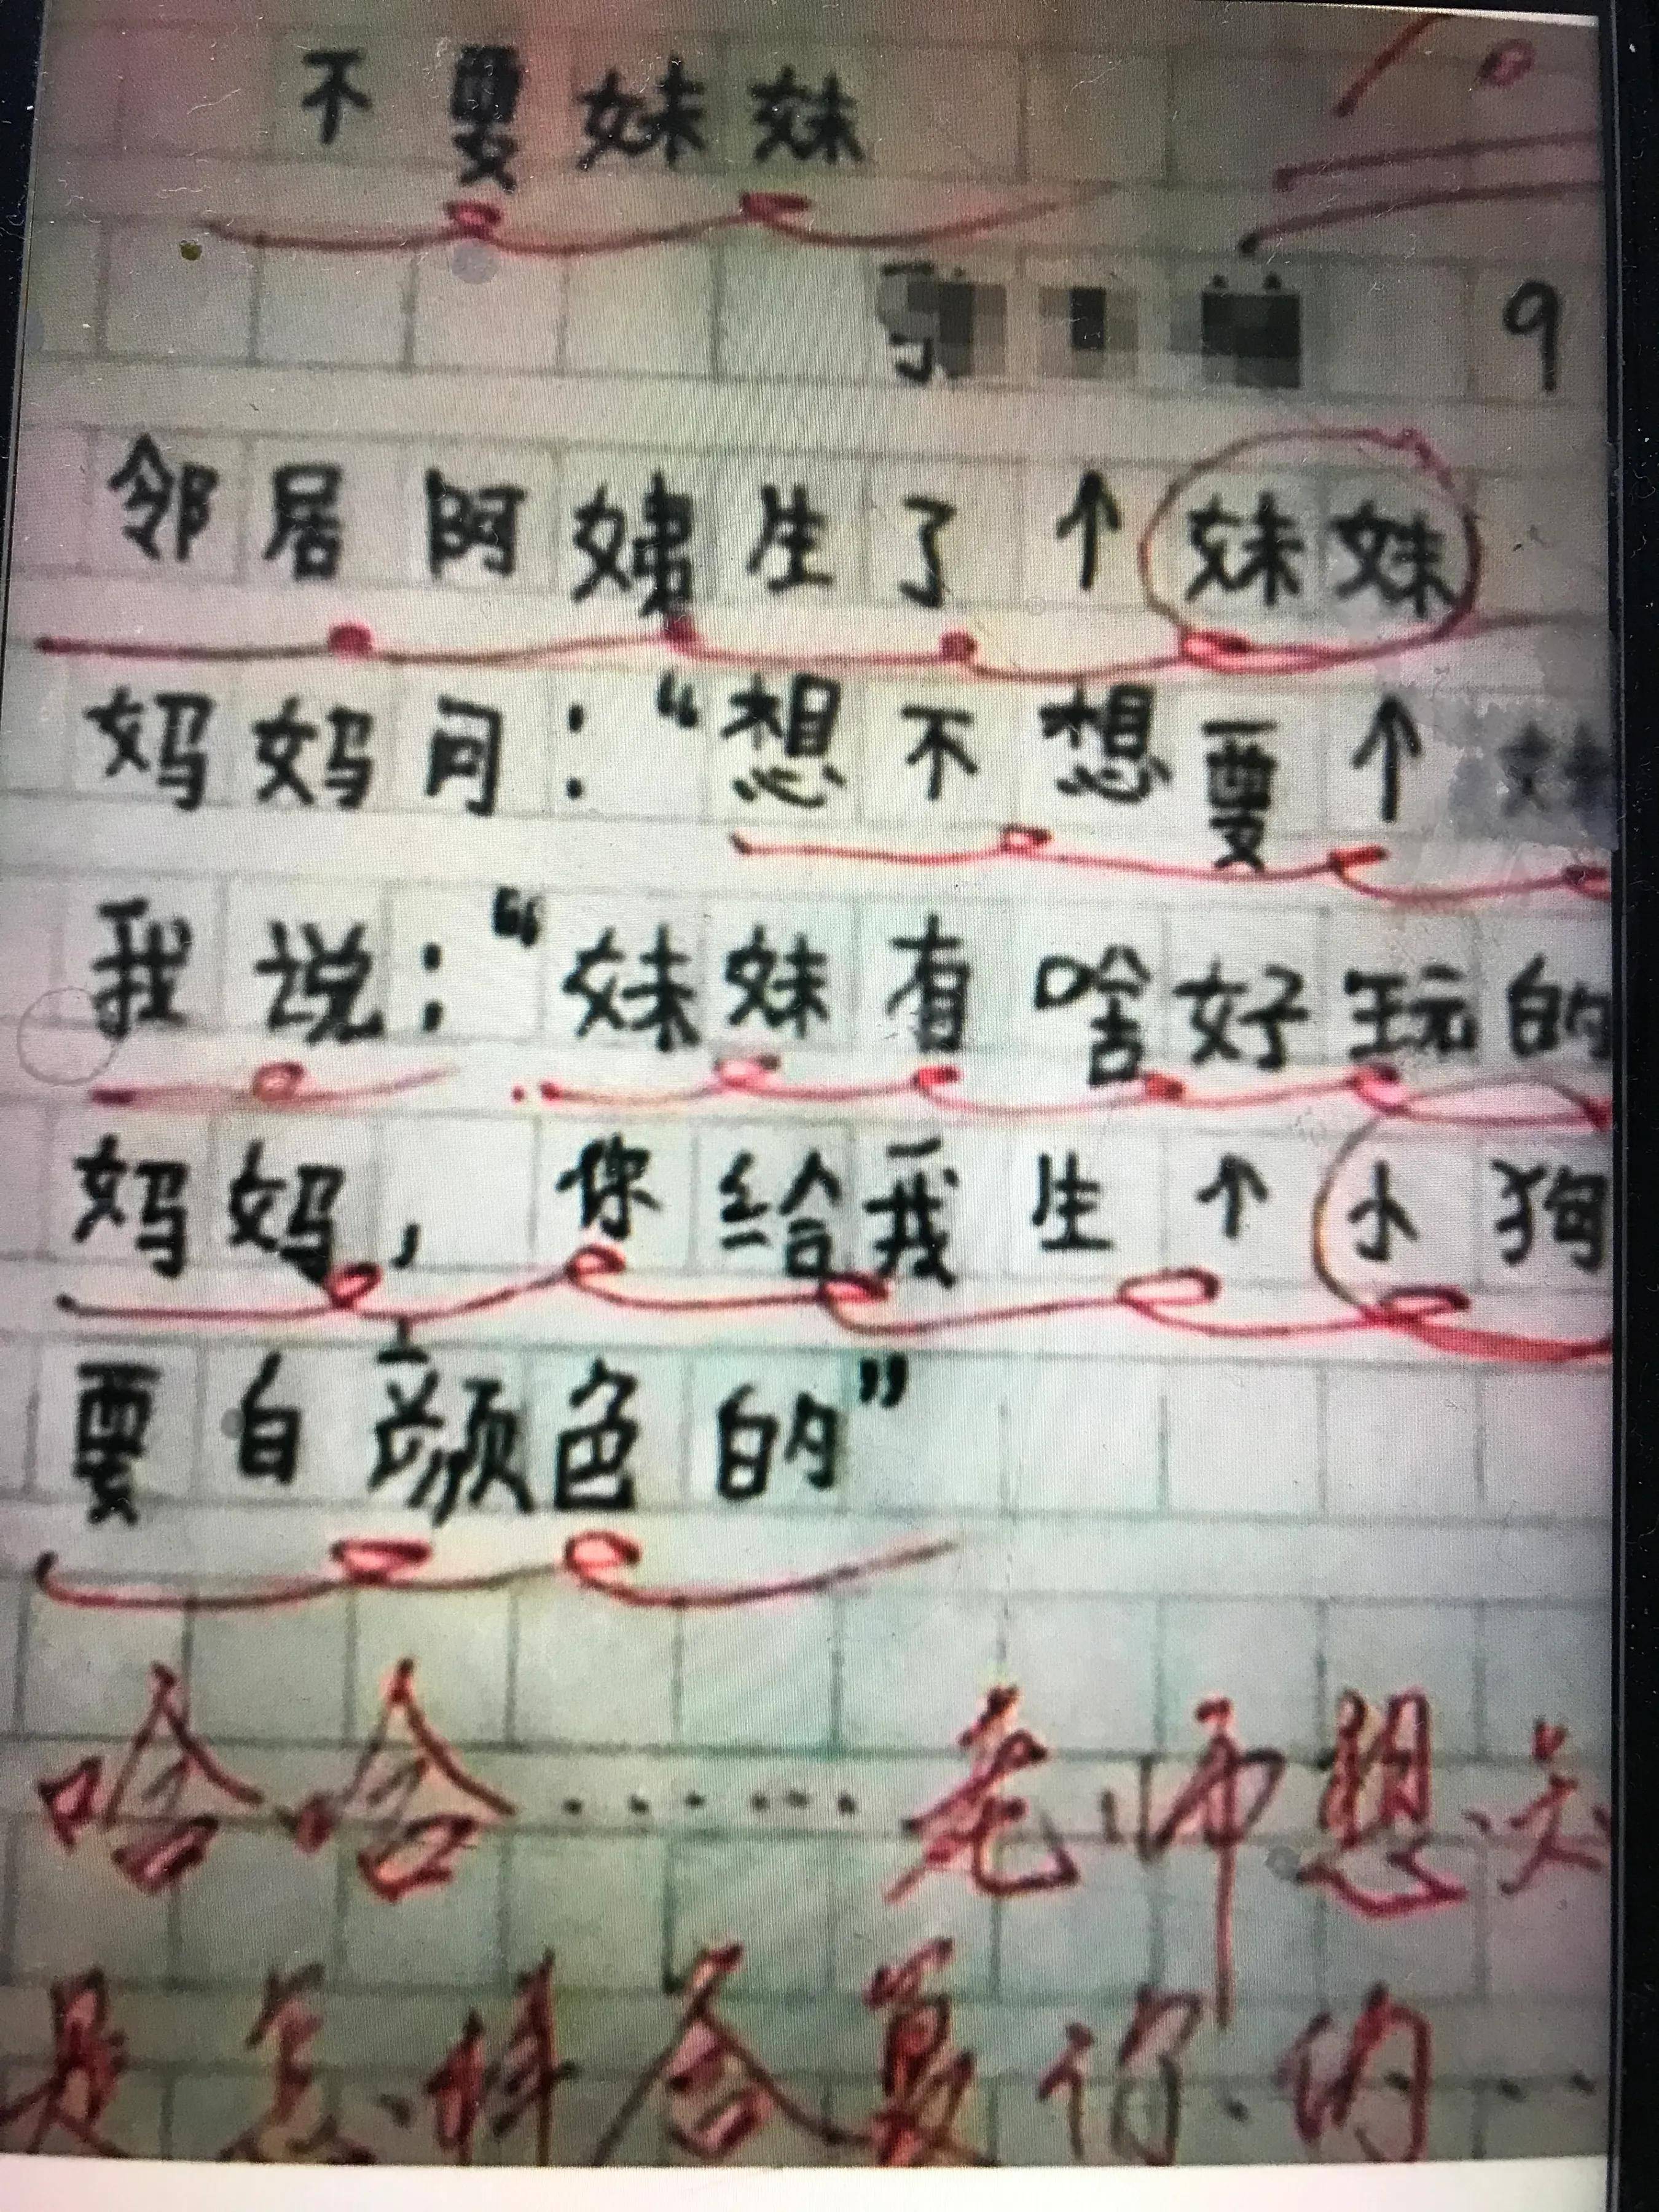 不要妹妹
9
邻居阿姨生了个妹妹
妈妈问：“想不想要个
我说：“妹妹有啥好玩的
妈妈，你给我生个小狗
要白颜色的”
哈哈……老师想知
是怎样答复你的…